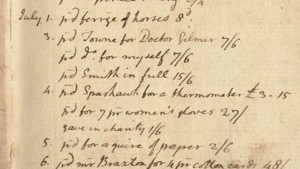 July 1. pd ferrige of horses 8d.
3. pd Towne for Doctor Gilmer 7/6
pd do. for myself 7/6
pd Smith in full 15/6
4. pd Sparhawk for a thermometer £3-15
pd for 7 pr women's gloves 27/
gave in charity 1/6
5. pd for a quire of paper 2/6
6. pd mr Braxton for 4 pr cotton cards 48/